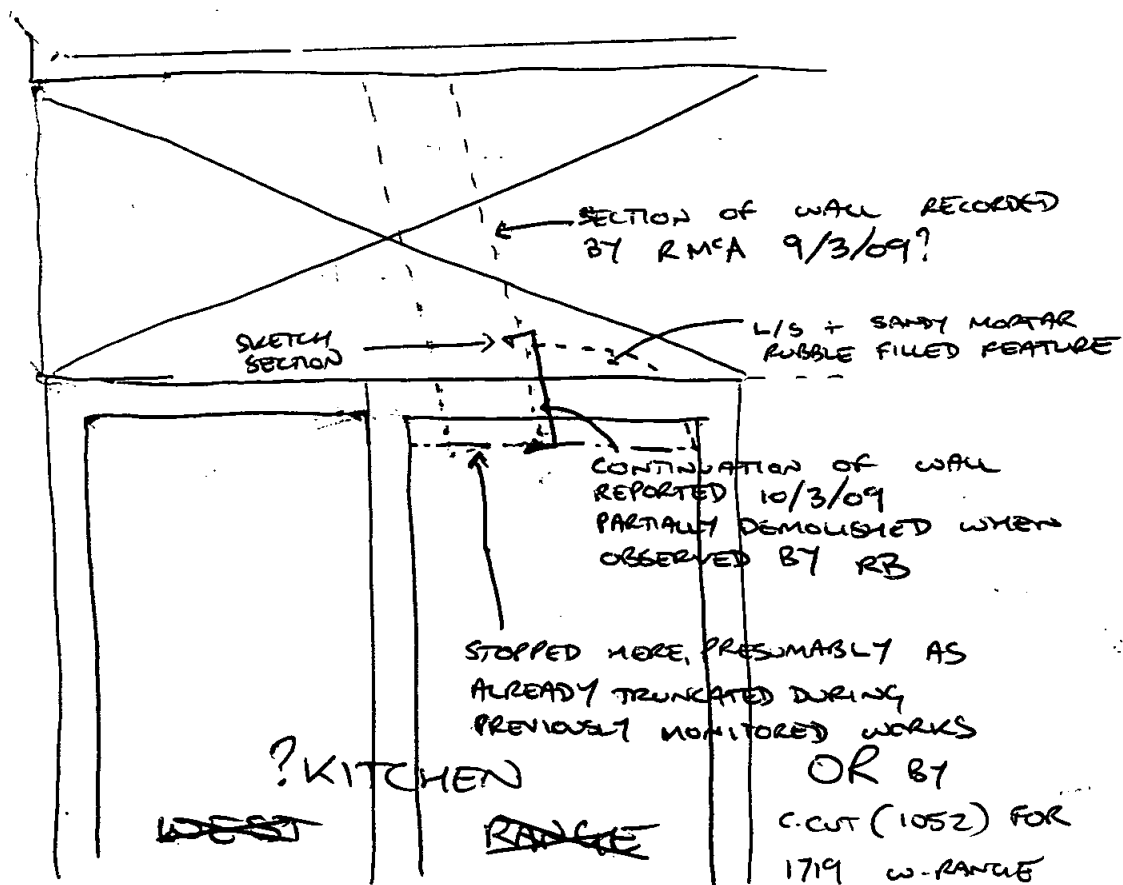 SECTION OF WALL RECORDED
BY R McA 9/3/09?
SKETCH
SECTION
L/S + SANDY MORTAR
RUBBLE FILLED FEATURE
CONTINUATION OF WALL
REPORTED 10/3/09
PARTIALLY DEMOLISHED WHEN
OBSERVED BY RB
STOPPED HERE, PRESUMABLY AS
ALREADY TRUNCATED DURING
PREVIOUSLY MONITORED WORKS
?KITCHEN
OR BY
WEST RANGE
C.CUT (1052) FOR
1719 W-RANGE